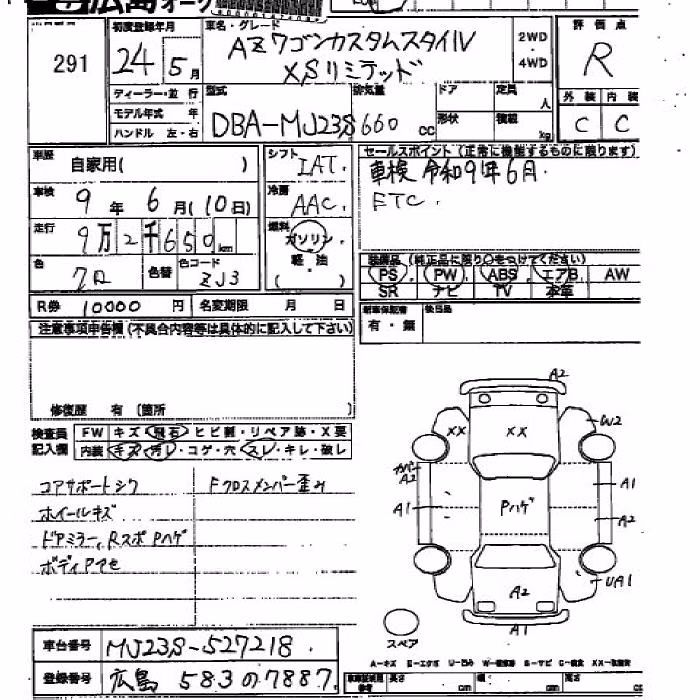 広島オーク
291
初度登録年月
24年 5月
車名・グレード
AZワゴンカスタムスタイル
XSリミテッド
2WD
・
4WD
評価点
R
外装 内装
C C
ディーラー・並行
モデル年式 年
ハンドル 左・右
型式
DBA-MJ23S
排気量
660 cc
ドア
形状
定員
人
積載
kg
車歴
自家用( )
車検
9年 6月(10日)
走行
9万2千650km
色
クロ
色替
色コード
ZJ3
シフト
IAT.
冷房
AAC.
燃料
ガソリン.
軽・油
( )
セールスポイント(正常に機能するものに限ります)
車検 令和9年6月.
ETC.
装備品(純正品に限り○をつけてください)
PS PW ABS エアB AW
SR ナビ TV 本革
R券 10000 円 名変期限 月 日
新車保証書
有・無
後日品
注意事項申告欄(不具合内容等は具体的に記入して下さい)
修復歴 有 (箇所 )
検査員
記入欄
FW キズ・飛石・ヒビ割・リペア跡・X要
内装 キズ・汚レ・コゲ・穴・スレ・キレ・破レ
コアサポートシク Fクロスメンバー歪み
ホイールキズ
ドアミラー,RスポPハゲ
ボディアセ
A2
XX
XX
W2
カバー
A2
A1
Pハゲ
A1
A2
A2
UA1
A1
スペア
A-キズ E-エクボ U-凹み
車台番号 MJ23S-527218.
登録番号 広島 583の7887.
長さ cm 幅 cm 高さ cm